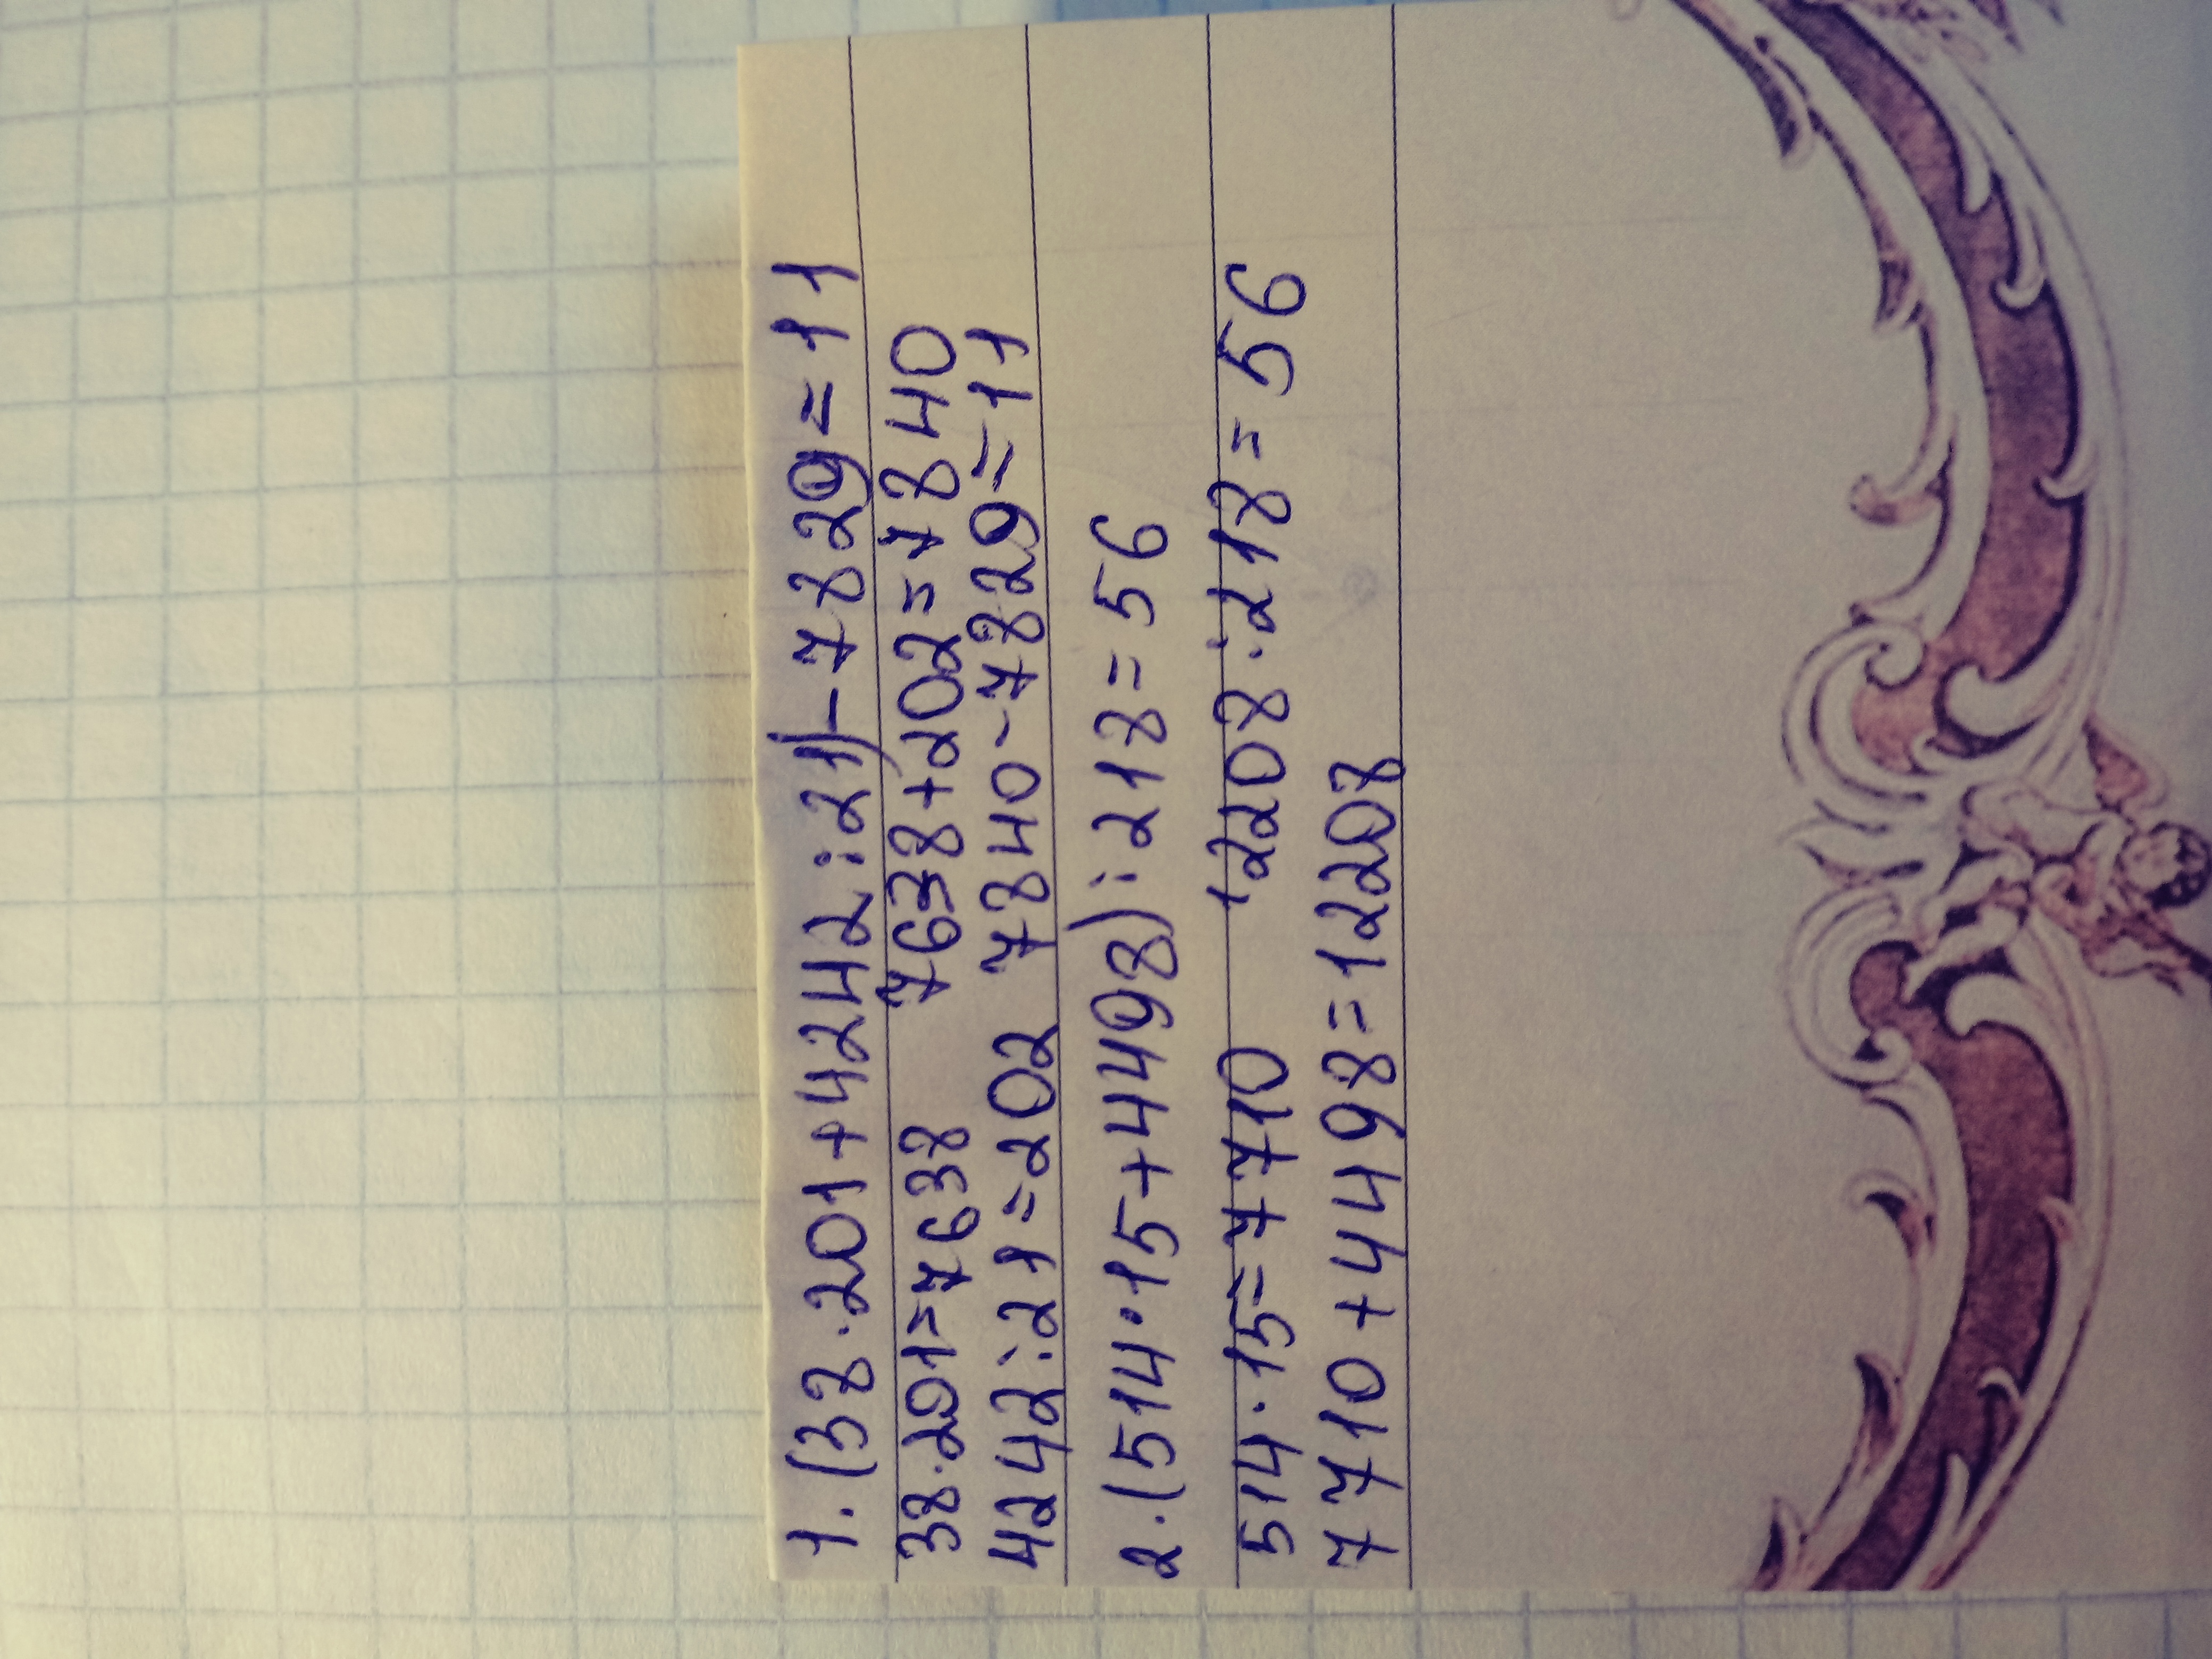 1. (38·201+4242:21)-7829=11
38·201=7638 7638+202=7840
4242:21=202 7840-7829=11
2. (514·15+4498):218=56
514·15=7710 12208:218=56
7710+4498=12208